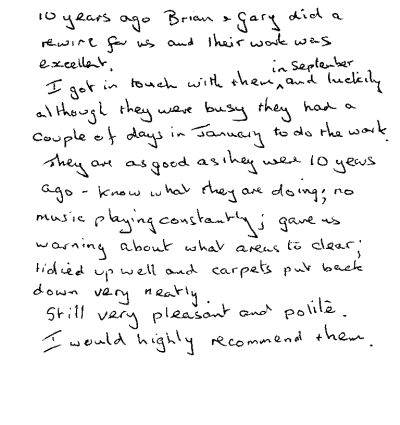 10 years ago Brian & Gary did a
rewire for us and their work was
excellent.
I got in touch with them, in September and luckily
although they were busy they had a
couple of days in January to do the work.
They are as good as they were 10 years
ago - know what they are doing; no
music playing constantly; gave us
warning about what areas to clear;
tidied up well and carpets put back
down very neatly.
Still very pleasant and polite.
I would highly recommend them.